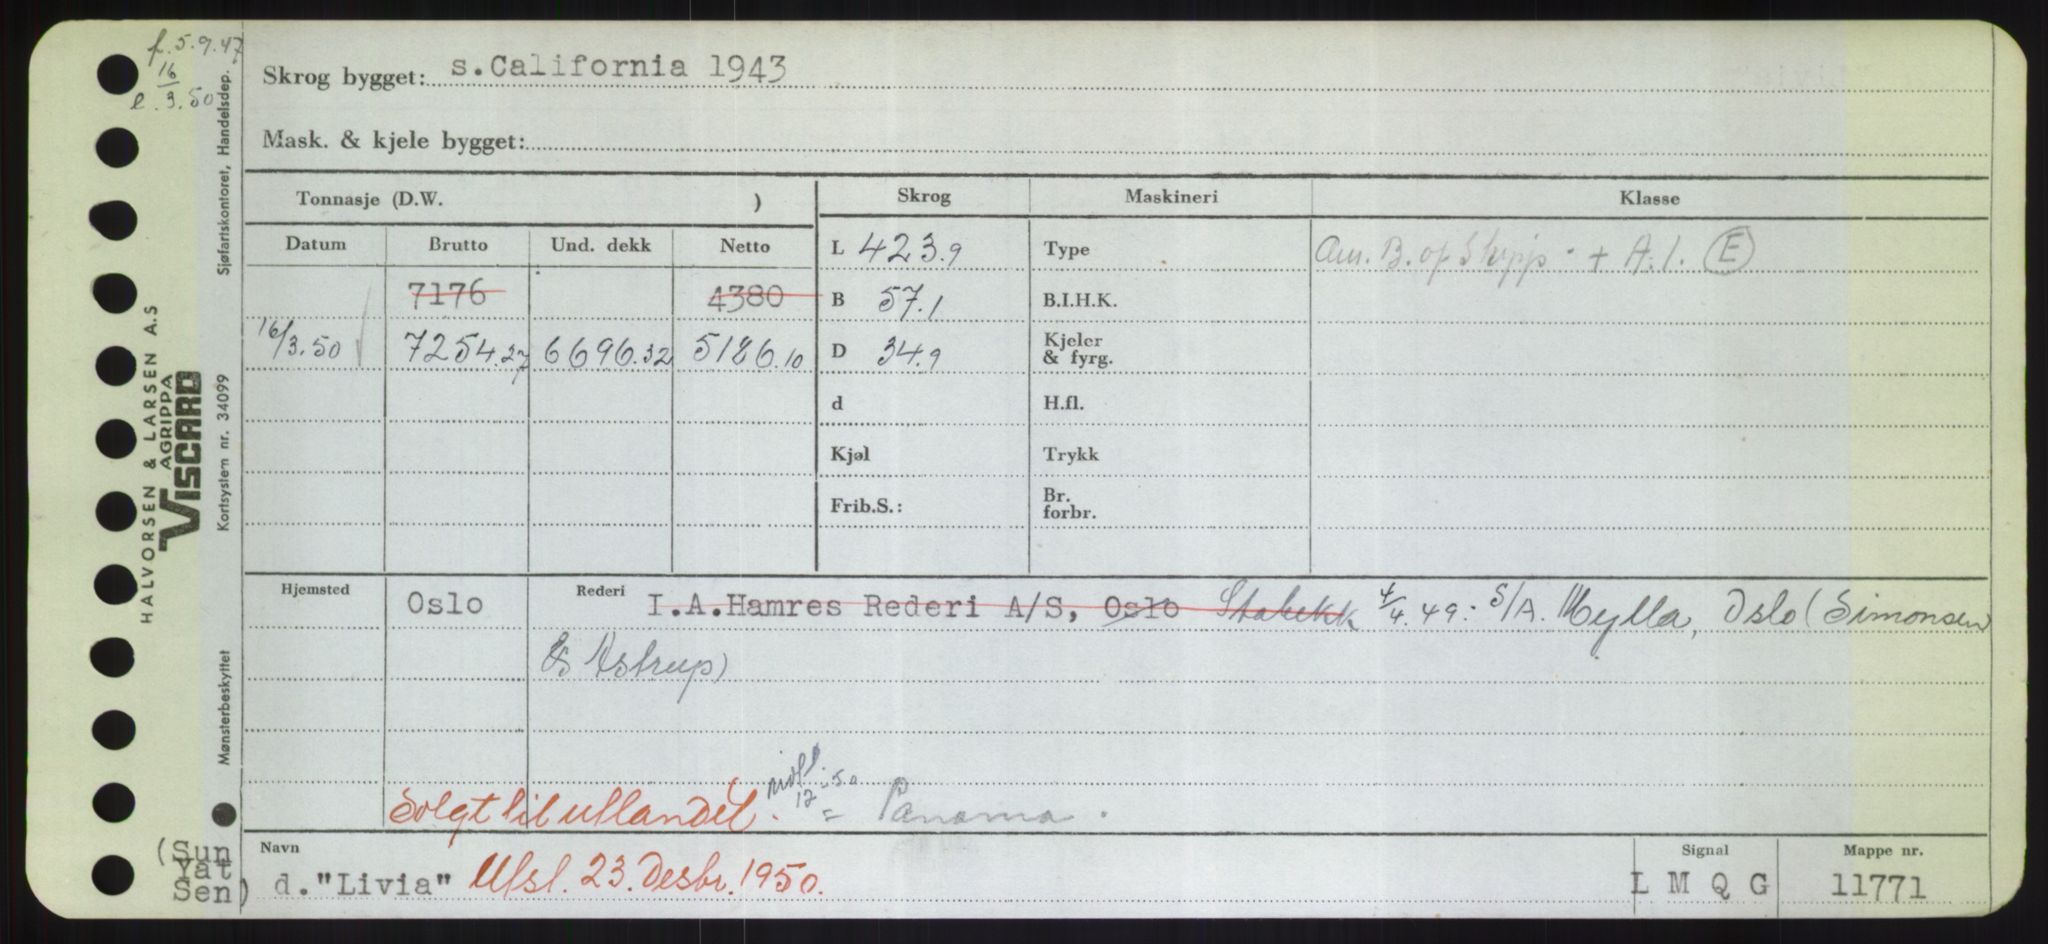 f. 5.9.47
16
e. 3.50
Skrog bygget: s.California 1943
Mask. & kjele bygget:
Tonnasje (D.W. )
Skrog
Maskineri
Klasse
Datum Brutto Und. dekk Netto
L 423.9
Type
Am. B. of Shipp. + A.1. (E)
7176 4380
B 57.1
B.I.H.K.
16/3.50 7254.27 6696.32 5186.10
D 34.9
Kjeler
& fyrg.
d
H.fl.
Kjøl
Trykk
Frib.S.:
Br.
forbr.
Hjemsted Oslo Rederi I.A.Hamres Rederi A/S, Oslo Stabekk 4/4.49. S/A. Mylla, Oslo (Simonsen
& Astrup)
Solgt til utlandet. 12-50 = Panama.
Navn
(Sun
Yat
Sen)
d."Livia" Utsl. 23. Desbr. 1950.
Signal
L M Q G
Mappe nr.
11771
HALVORSEN & LARSEN A.S
AGRIPPA
VISCARD
Sjøfartskontoret, Handelsdep.
Kortsystem nr. 34099
Mønsterbeskyttet